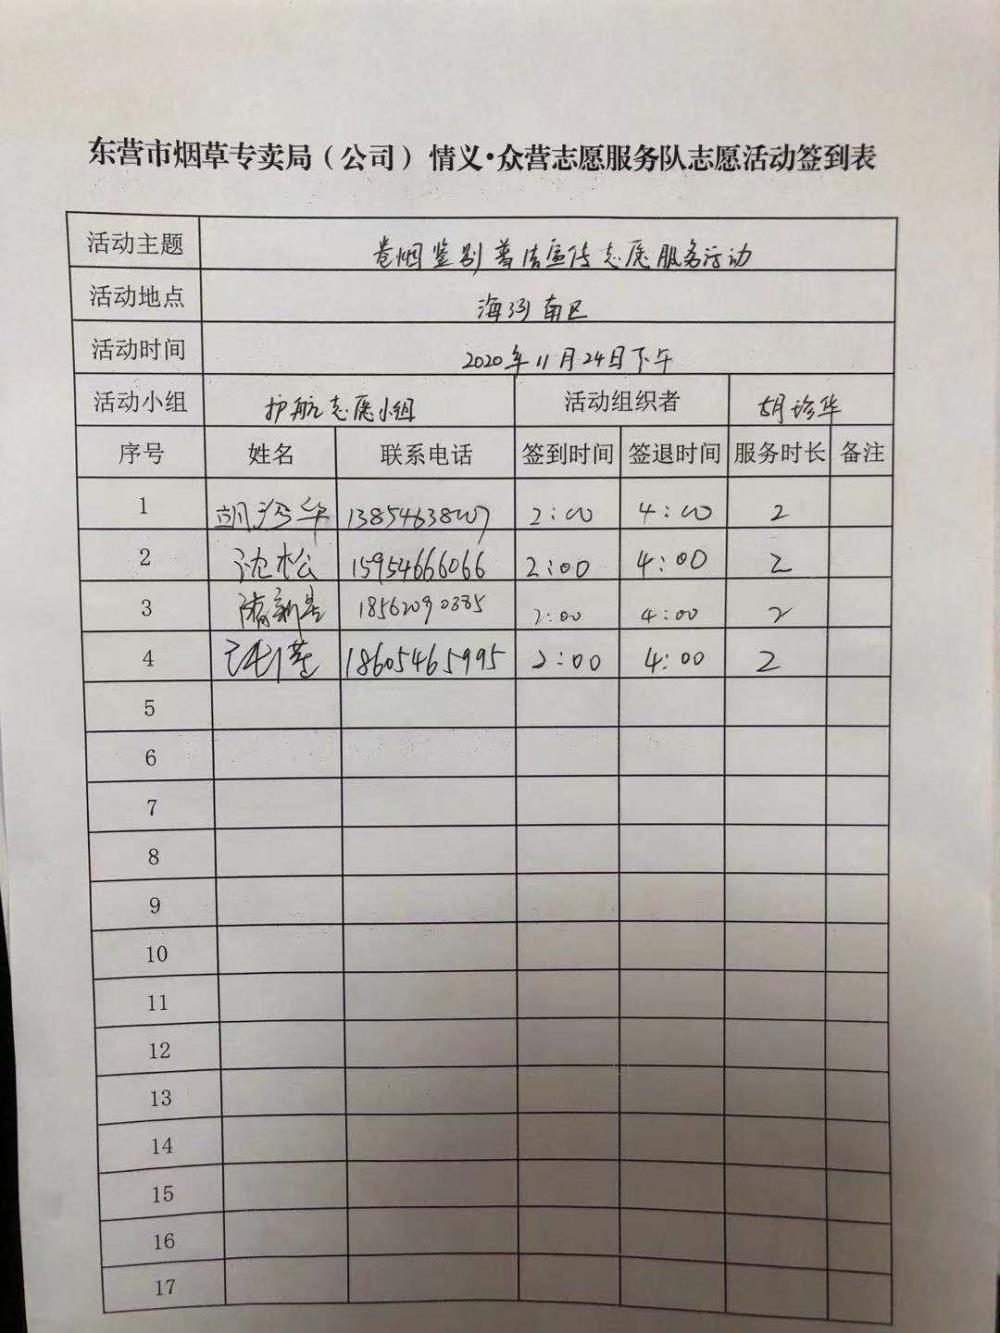 东营市烟草专卖局（公司）情义·众营志愿服务队志愿活动签到表
活动主题 卷烟鉴别普法宣传志愿服务活动
活动地点 海河南区
活动时间 2020年11月24日下午
活动小组 护航志愿小组 活动组织者 胡珍华
序号 姓名 联系电话 签到时间 签退时间 服务时长 备注
1 胡珍华 13854638007 2:00 4:00 2
2 沈松 15954666066 2:00 4:00 2
3 18562090385 2:00 4:00 2
4 18605465995 2:00 4:00 2
5
6
7
8
9
10
11
12
13
14
15
16
17